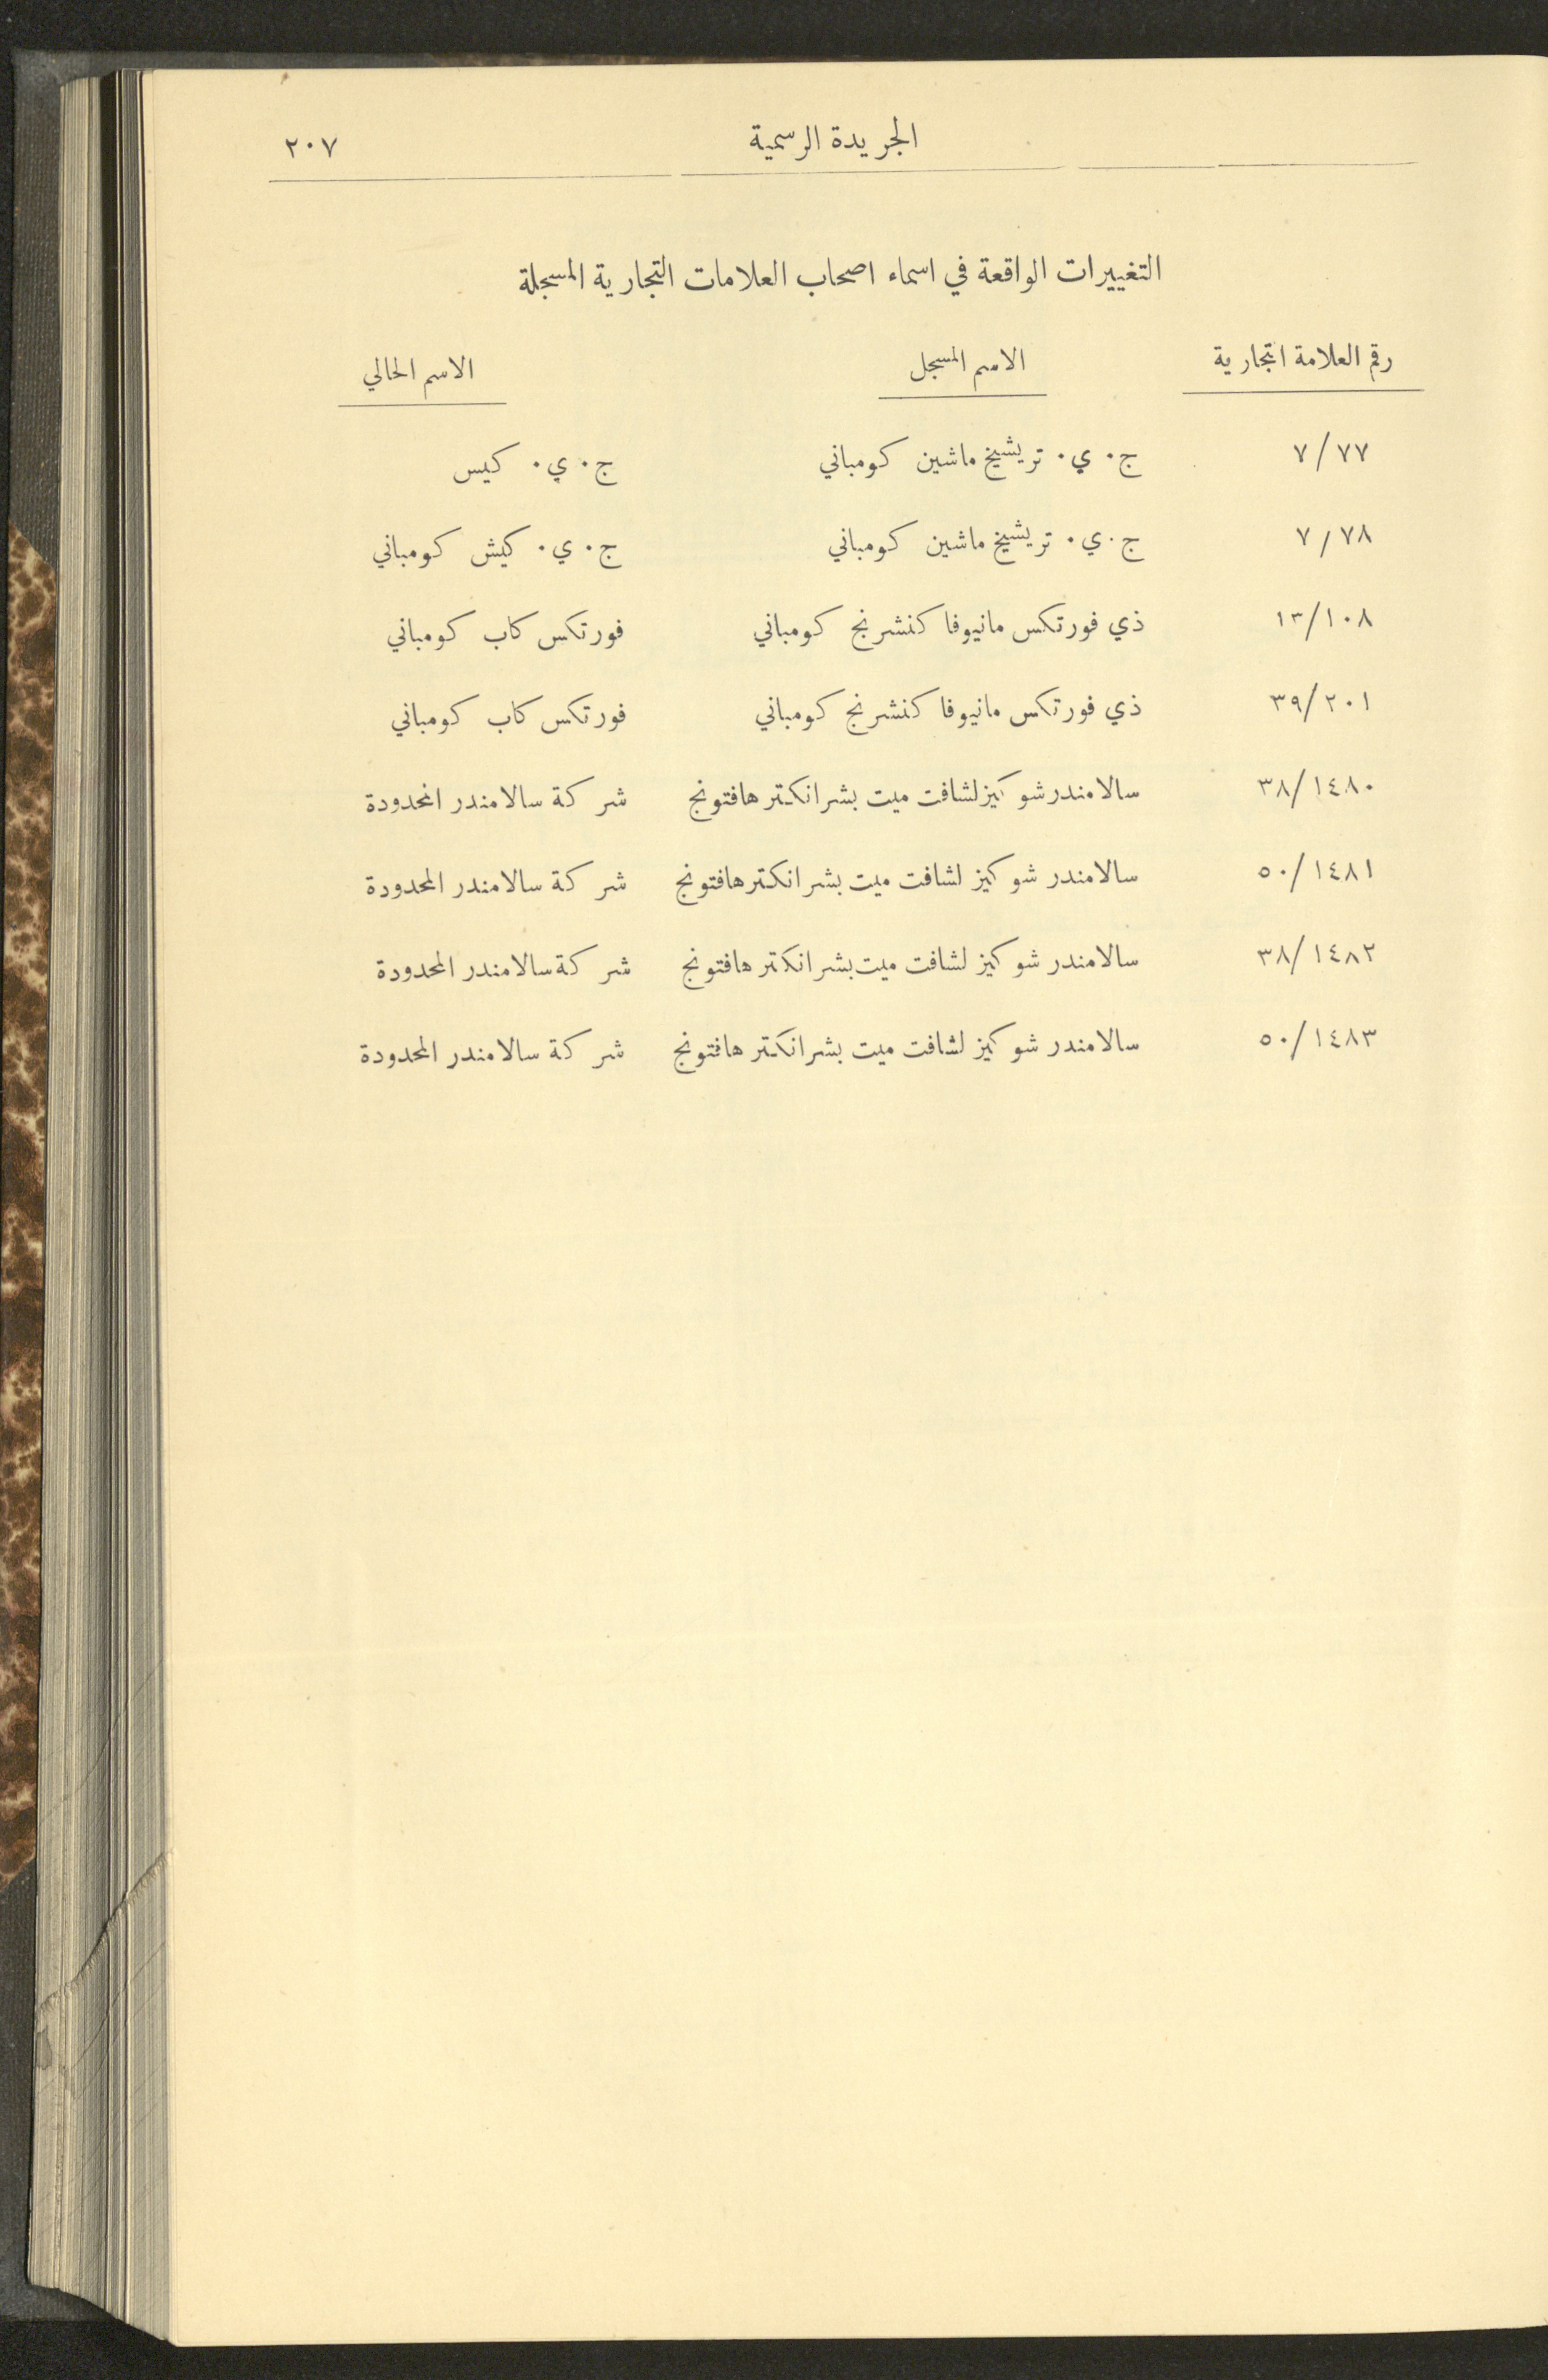 الجريدة الرسمية ٢٠٧
التغييرات الواقعة في اسماء اصحاب العلامات التجارية المسجلة
رقم العلامة التجارية الاسم المسجل الاسم الحالي
٧/٧٧ ج. ي. تريشيخ ماشين كومباني ج. ي. كيس
٧/٧٨ ج. ي. تريشيخ ماشين كومباني ج. ي. كيش كومباني
١٣/١٠٨ ذي فورتكس مانيوفا كنشرنج كومباني فورتكس كاب كومباني
٣٩/٢٠١ ذي فورتكس مانيوفا كنشرنج كومباني فورتكس كاب كومباني
٣٨/١٤٨٠ سالامندرشو كيزلشافت ميت بشرانكتر هافتونج شركة سالامندر المحدودة
٥٠/١٤٨١ سالامندر شو كيز لشافت ميت بشرانكترهافتونج شركة سالامندر المحدودة
٣٨/١٤٨٢ سالامندر شو كيز لشافت ميت بشرانكتر هافتونج شركة سالامندر المحدودة
٥٠/١٤٨٣ سالامندر شو كيز لشافت ميت بشرانكتر هافتونج شركة سالامندر المحدودة